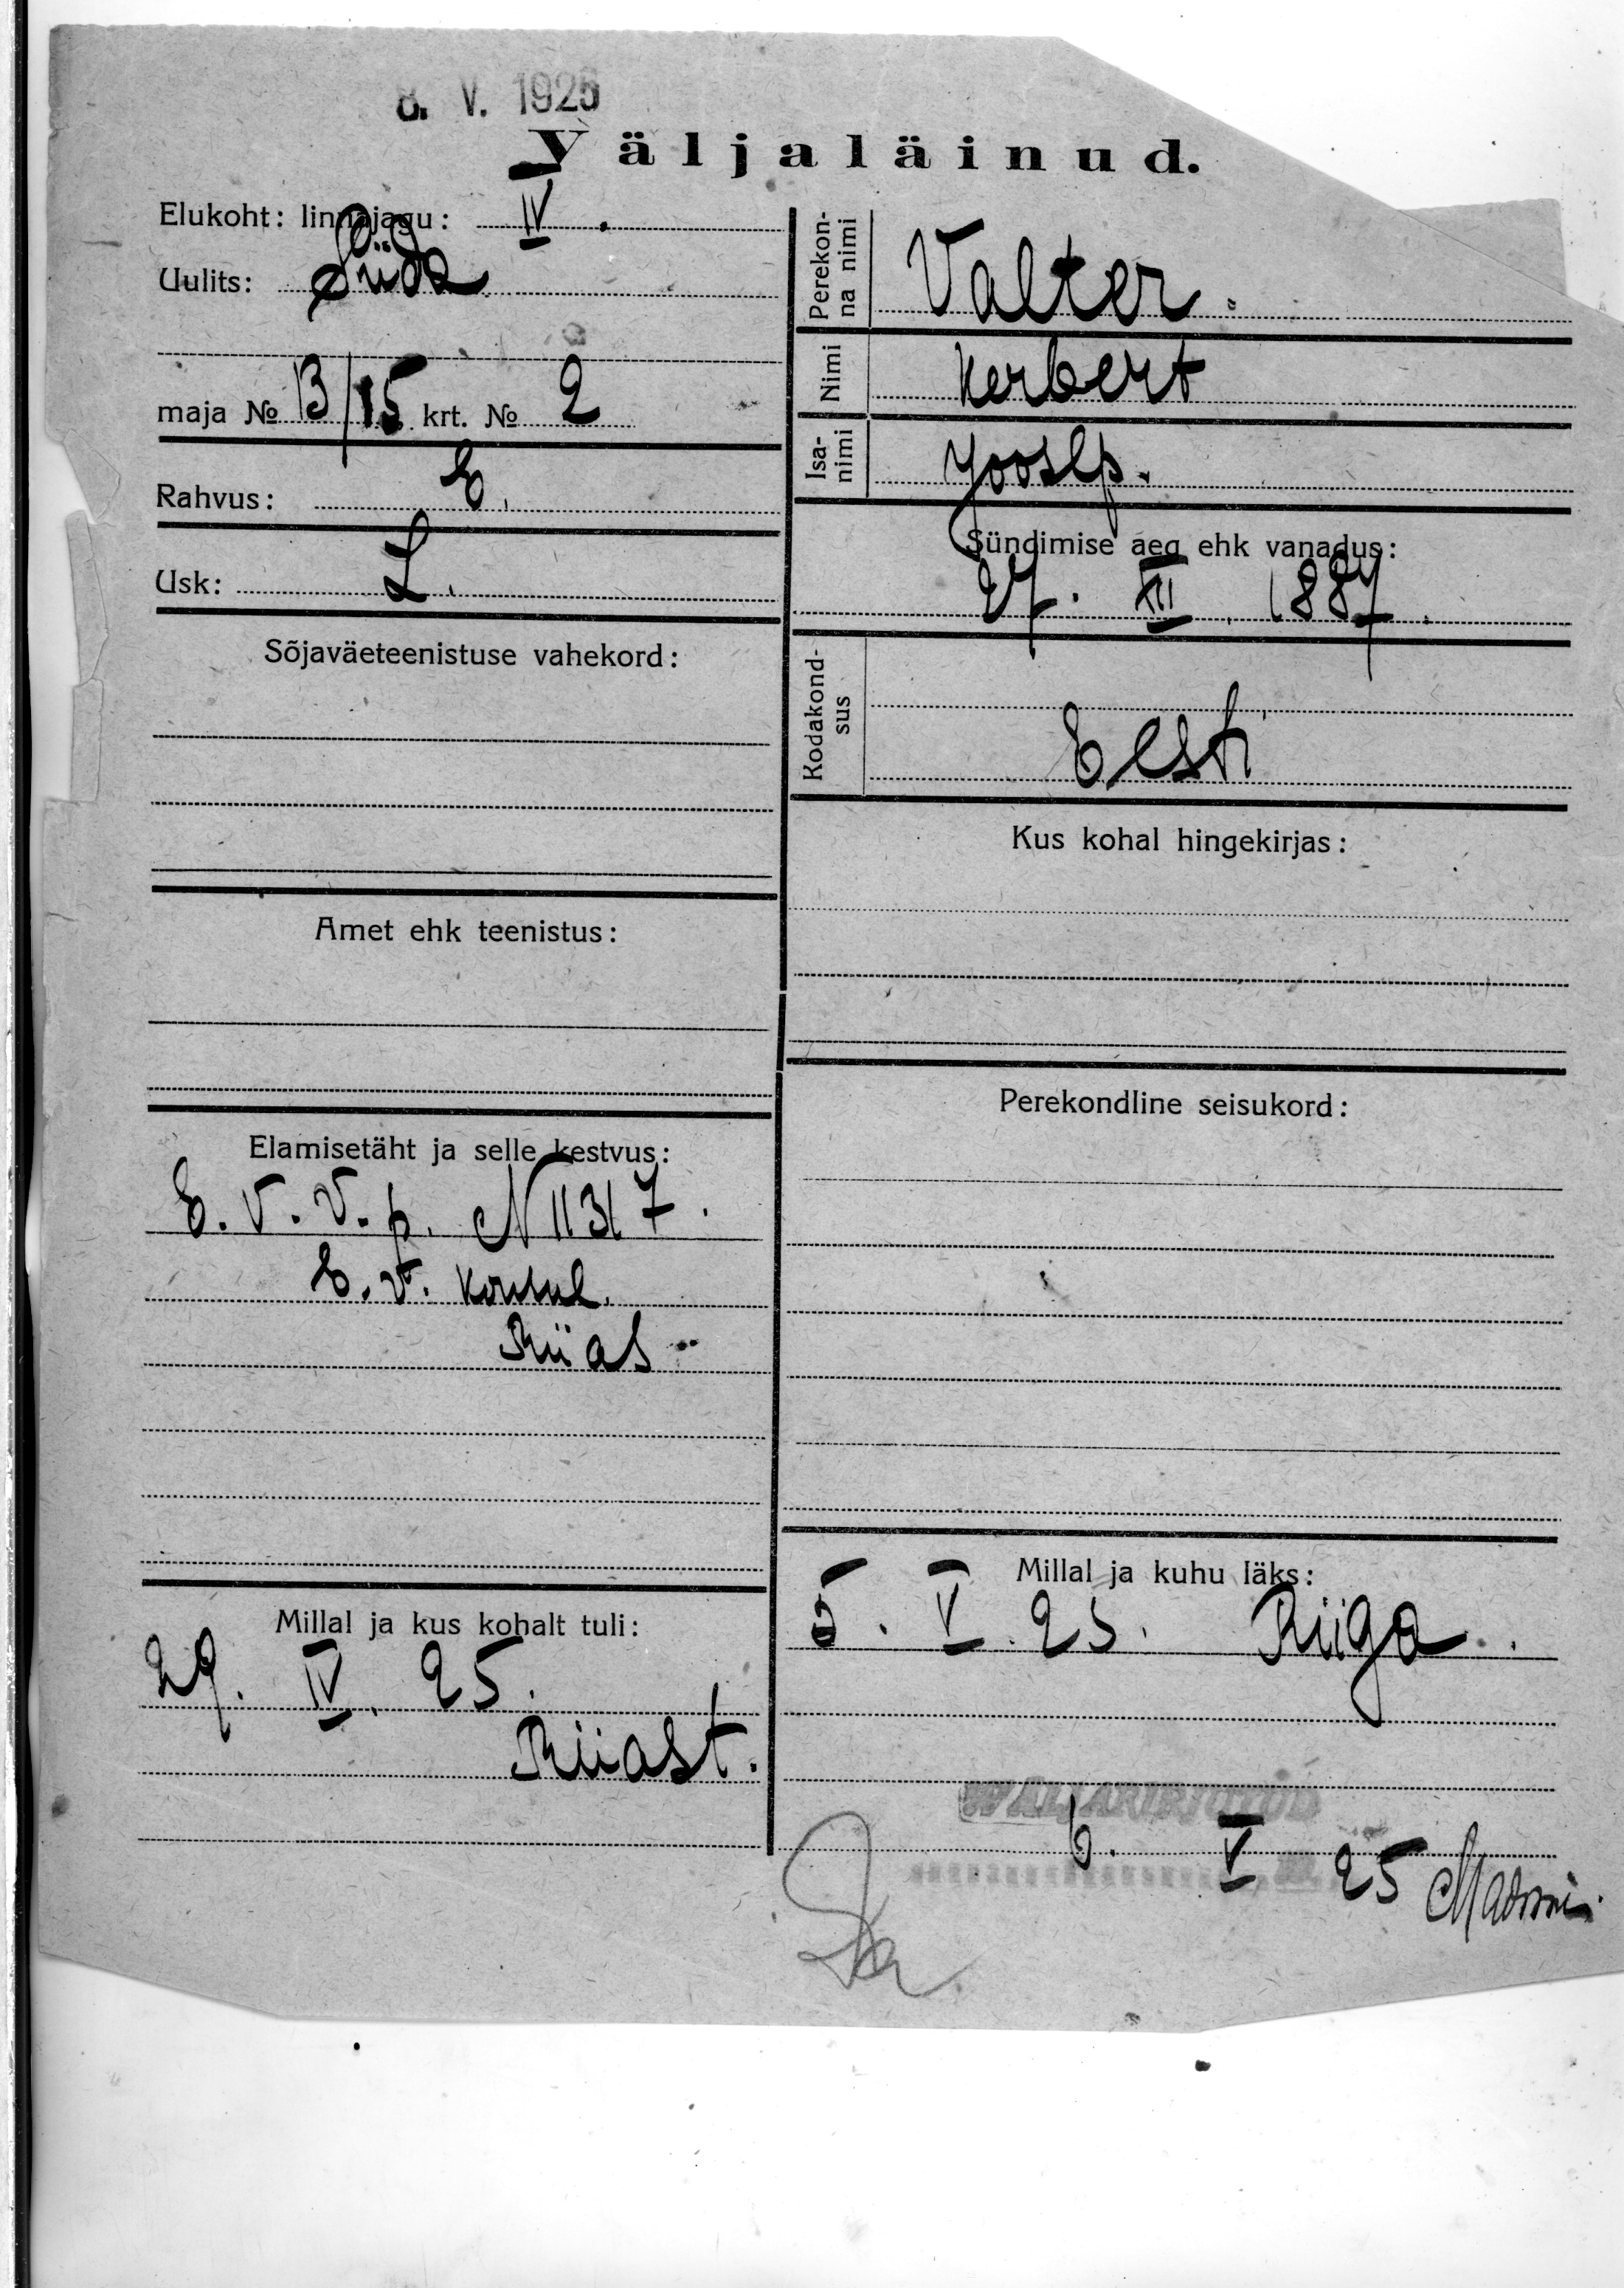 8. V. 1925
Väljaläinud.
Elukoht: linnajagu: IV.
Uulits: Süda
maja № 13/15 krt. № 2
Rahvus: E.
Usk: L.
Sõjaväeteenistuse vahekord:
Amet ehk teenistus:
Elamisetäht ja selle kestvus:
E. V. V. p. N 11317.
E. V. konsul.
Riias
Millal ja kus kohalt tuli:
29. IV. 25.
Riiast.
Perekon-
na nimi
Valter.
Nimi
Herbert
Isa-
nimi
Joosep.
Sündimise aeg ehk vanadus:
27. XII. 1887.
Kodakond-
sus
Eesti
Kus kohal hingekirjas:
Perekondline seisukord:
Millal ja kuhu läks:
5. V. 25. Riiga.
WÄLJAKIRJUTUD
6. V 25